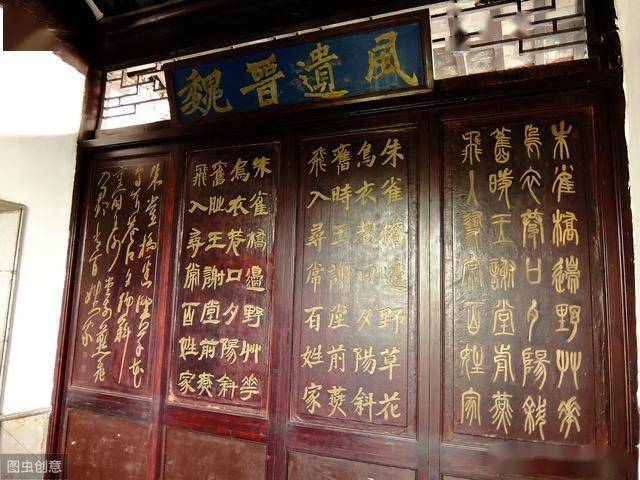 魏晉遺風
朱雀橋邊野艸華
烏衣巷口夕陽斜
舊時王謝堂前燕
飛入尋常百姓家
朱雀橋邊野草花
烏衣巷口夕陽斜
舊時王謝堂前燕
飛入尋常百姓家
朱雀橋邊野艸華
烏衣巷口夕陽斜
舊時王謝堂前燕
飛入尋常百姓家
朱雀橋邊野草花
烏衣巷口夕陽斜
舊時王謝堂前燕飛
入尋常百姓家
图虫创意